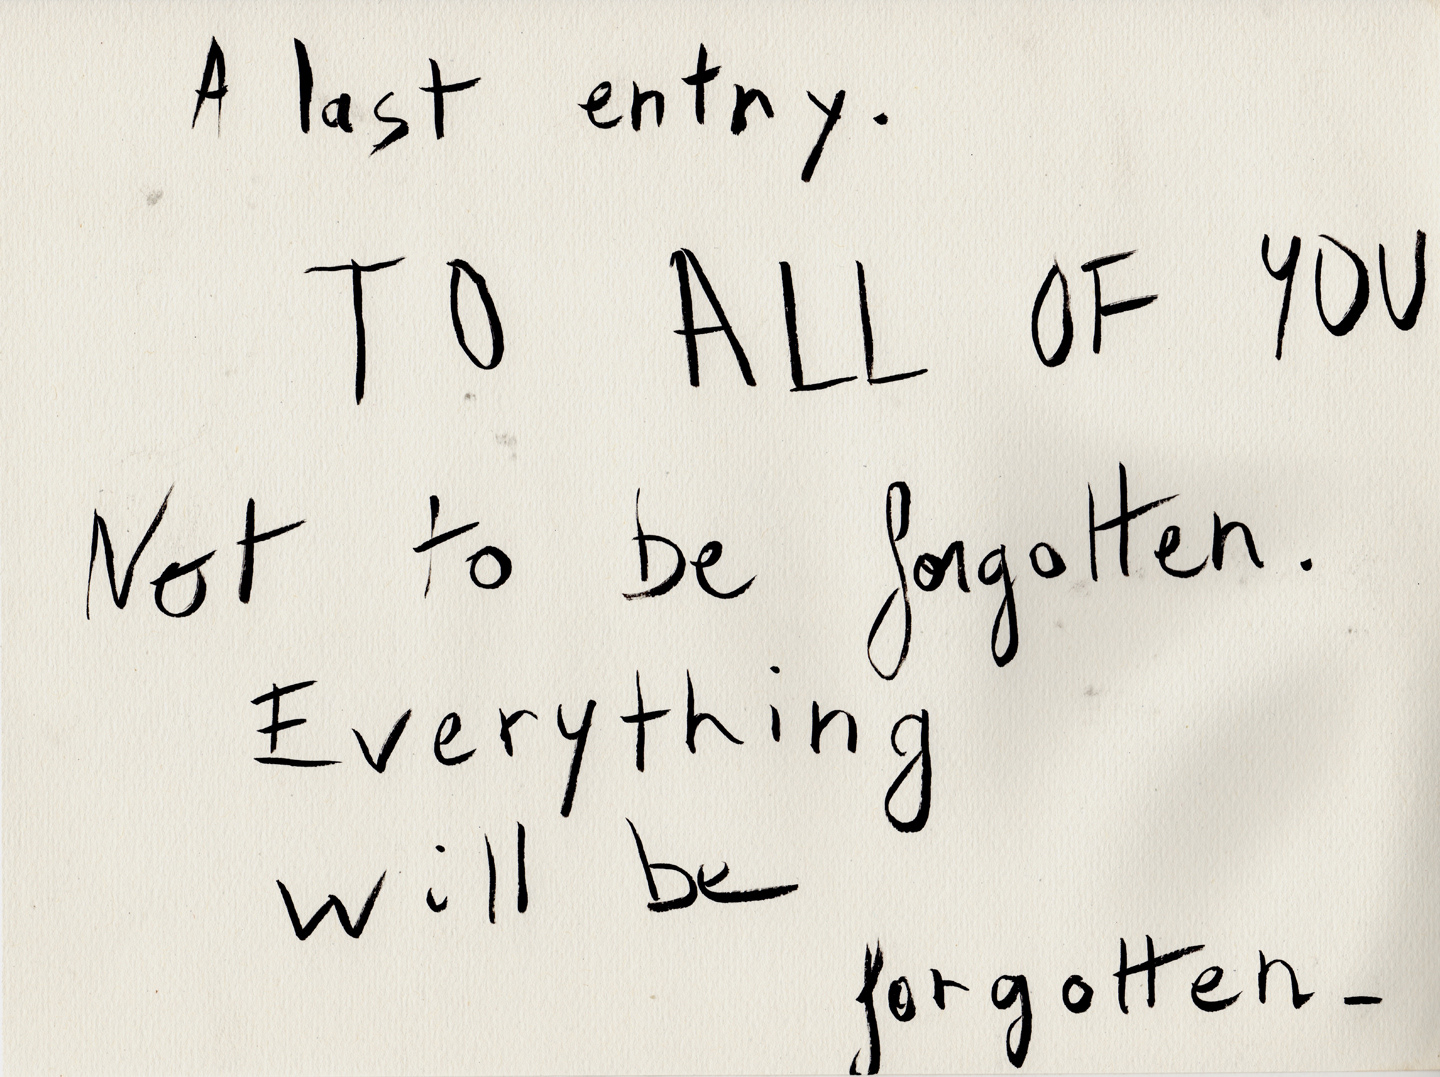 A last entry.
TO ALL OF YOU
Not to be forgotten.
Everything
will be
forgotten_